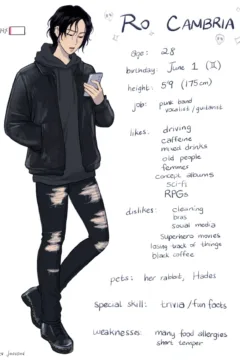 Ro Cambria
age: 28
birthday: June 1 (II)
height: 5'9 (175cm)
job: punk band
vocalist/guitarist
likes: driving
caffeine
mixed drinks
old people
femmes
concept albums
sci-fi
RPGs
dislikes: cleaning
bras
social media
superhero movies
losing track of things
black coffee
pets: her rabbit, Hades
special skill: trivia/fun facts
weaknesses: many food allergies
short temper